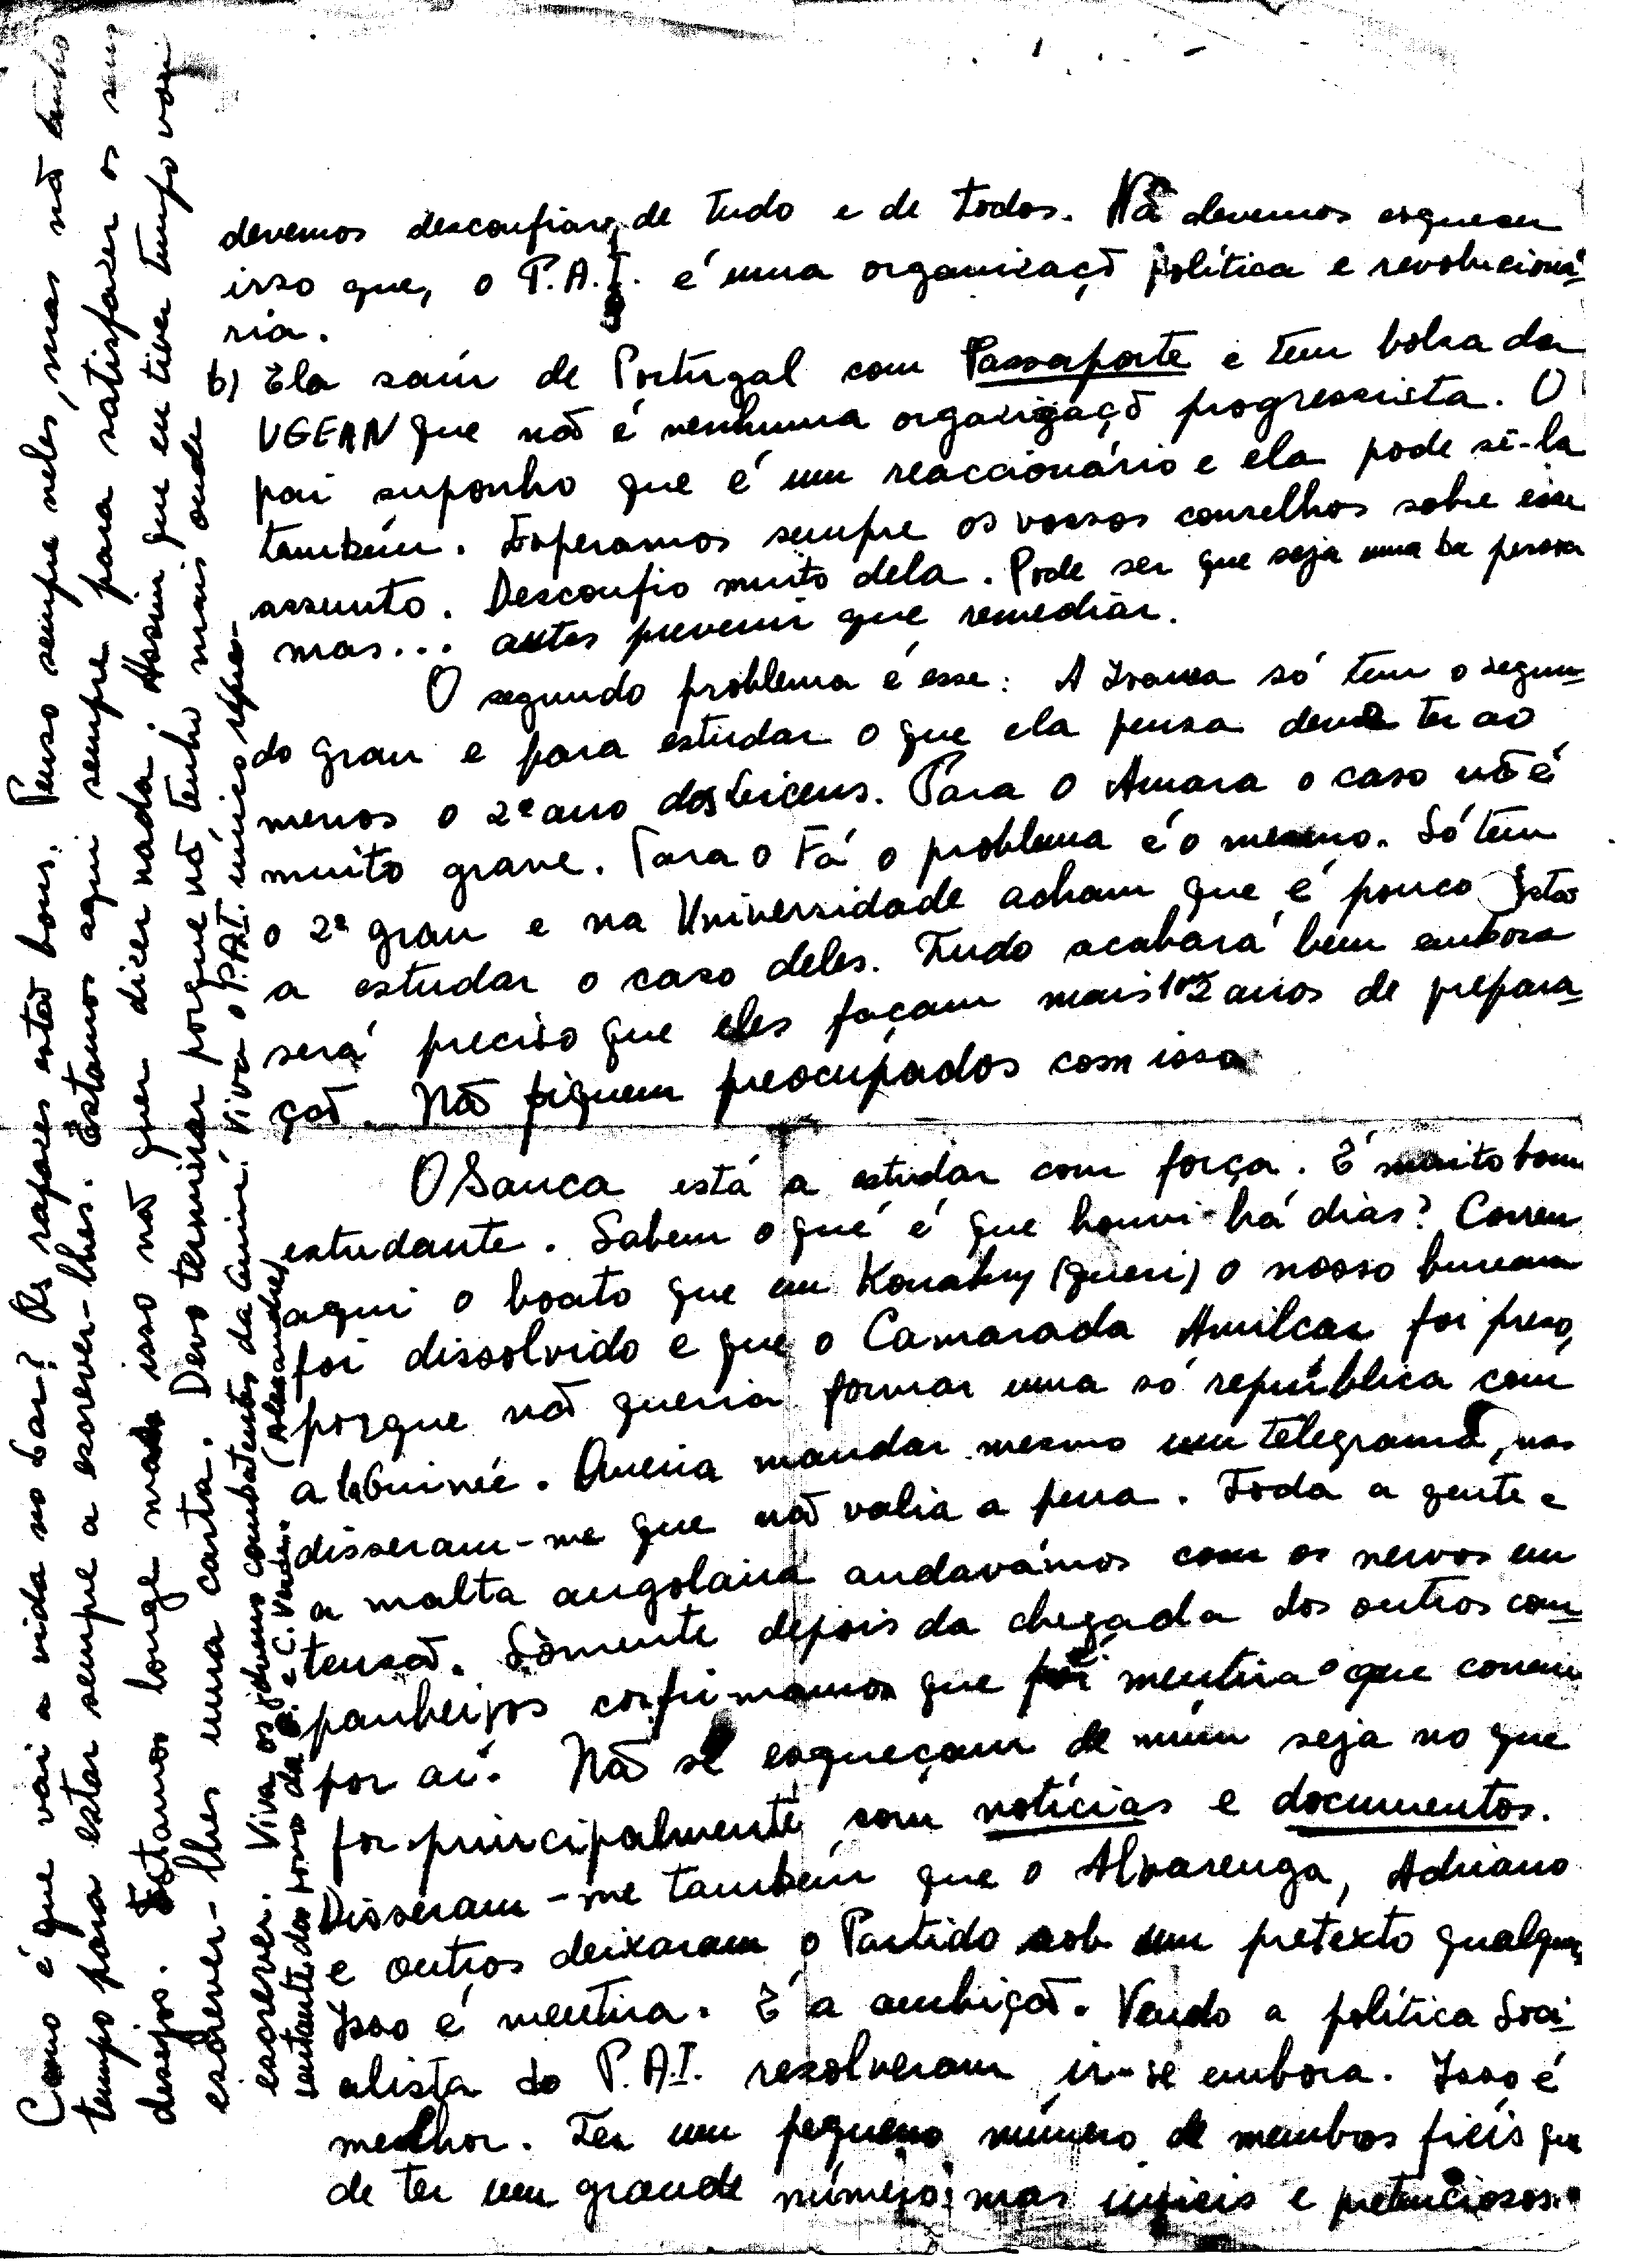 devemos desconfiar, de tudo e de todos. Não devemos esquecer
isso que, o P.A.I. é uma organizaçõ política e revolucioná-
ria.
b) Ela saíu de Portugal com Passaporte e tem bolsa da
UGEAN que não é nenhuma organizaçõ progressista. O
pai suponho que é um reaccionário e ela pode sê-la
também. Esperamos sempre os vossos conselhos sobre esse
assunto. Desconfio muito dela. Pode ser que seja uma boa pessoa
mas... antes prevenir que remediar.
O segundo problema é esse: A Ivonea só tem o segun-
do grau e para estudar o que ela pensa deve ter ao
menos o 2º ano dos liceus. Para o Amara o caso não é
muito grave. Para o Fá o problema é o mesmo. Só tem
o 2º grau e na Universidade acham que é pouco. Estão
a estudar o caso deles. Tudo acabará bem embora
será preciso que eles façam mais 1 ou 2 anos de prepara-
ção. Não fiquem preocupados com isso
O Sanca está a estudar com força. É muito bom
estudante. Sabem o quê é que houvi há dias? Correu
aqui o boato que em Konakry (queri) o nosso bureau
foi dissolvido e que o Camarada Amilcar foi preso,
porque não queria formar uma só república com
a la Guinée. Queria mandar mesmo um telegrama, mas
disseram-me que não valia a pena. Toda a gente e
a malta angolana andavámos com os nervos em
tensão. Sòmente depois da chegada dos outros com-
panheiros confirmamos que foi mentira o que correu
por aí. Não se esqueçam de mim seja no que
for principalmente com notícias e documentos.
Disseram-me também que o Alvarenga, Adriano
e outros deixaram o Partido sob um pretexto qualquer
Isso é mentira. É a ambição. Vendo a política Soci-
alista do P.A.I. resolveram ir-se embora. Isso é
melhor. Ter um pequeno número de membros fiéis que
de ter um grande número mas infieis e pretenciosos.
Como é que vai a vida no bar? Os rapazes estão bons. Penso sempre neles, mas não tenho
tempo para estar sempre a escrever-lhes. Estamos aqui sempre para satisfazer os seus
desejos. Estamos longe mas isso não quer dizer nada. Assim que eu tiver tempo vou
escrever-lhes uma carta. Devo terminar porque não tenho mais onde
escrever. Viva os jovens combatentes da Guiné! Viva o P.A.I. unico repre-
sentante dos povos da G. e C. Verde. (Alexandre)